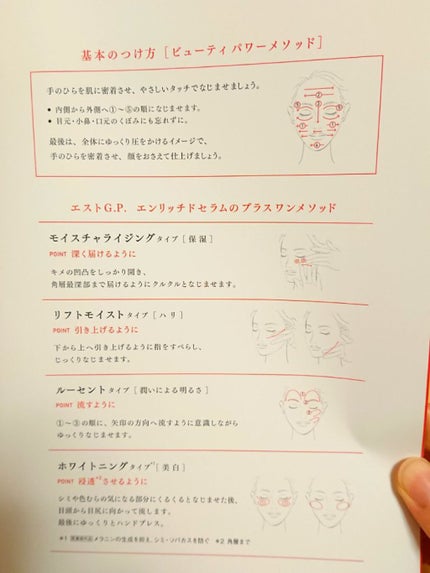 基本のつけ方［ビューティパワーメソッド］
手のひらを肌に密着させ、やさしいタッチでなじませましょう。
● 内側から外側へ①〜⑤の順になじませます。
● 目元・小鼻・口元のくぼみにも忘れずに。
最後は、全体にゆっくり圧をかけるイメージで、
手のひらを密着させ、顔をおさえて仕上げましょう。
エストG.P. エンリッチドセラムのプラスワンメソッド
モイスチャライジングタイプ［保湿］
POINT 深く届けるように
キメの凹凸をしっかり開き、
角層最深部まで届けるようにクルクルとなじませます。
リフトモイストタイプ［ハリ］
POINT 引き上げるように
下から上へ引き上げるように指をすべらし、
じっくりなじませます。
ルーセントタイプ［潤いによる明るさ］
POINT 流すように
①〜③の順に、矢印の方向へ流すように意識しながら
ゆっくりなじませます。
ホワイトニングタイプ*1［美白］
POINT 浸透*2させるように
シミや色むらの気になる部分にくるくるとなじませた後、
目頭から目尻に向かって流します。
最後にゆっくりとハンドプレス。
*1 医薬部外品 メラニンの生成を抑え、シミ・ソバカスを防ぐ *2 角層まで